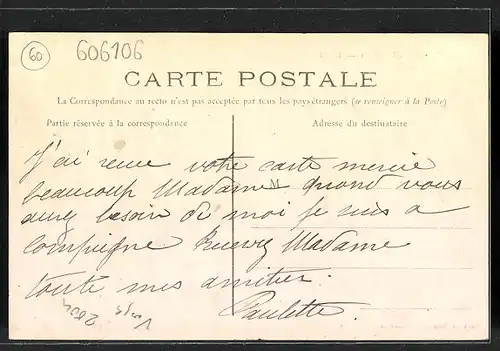 60
606106
CARTE POSTALE
La Correspondance au recto n'est pas acceptée par tous les pays étrangers (se renseigner à la Poste)
Partie réservée à la correspondance
Adresse du destinataire
M
J'ai reçue votre carte mercie
beaucoup Madame quand vous
aurez besoin de moi je suis a
Compiegne Recevez Madame
toute mes amitier.
Paulette.